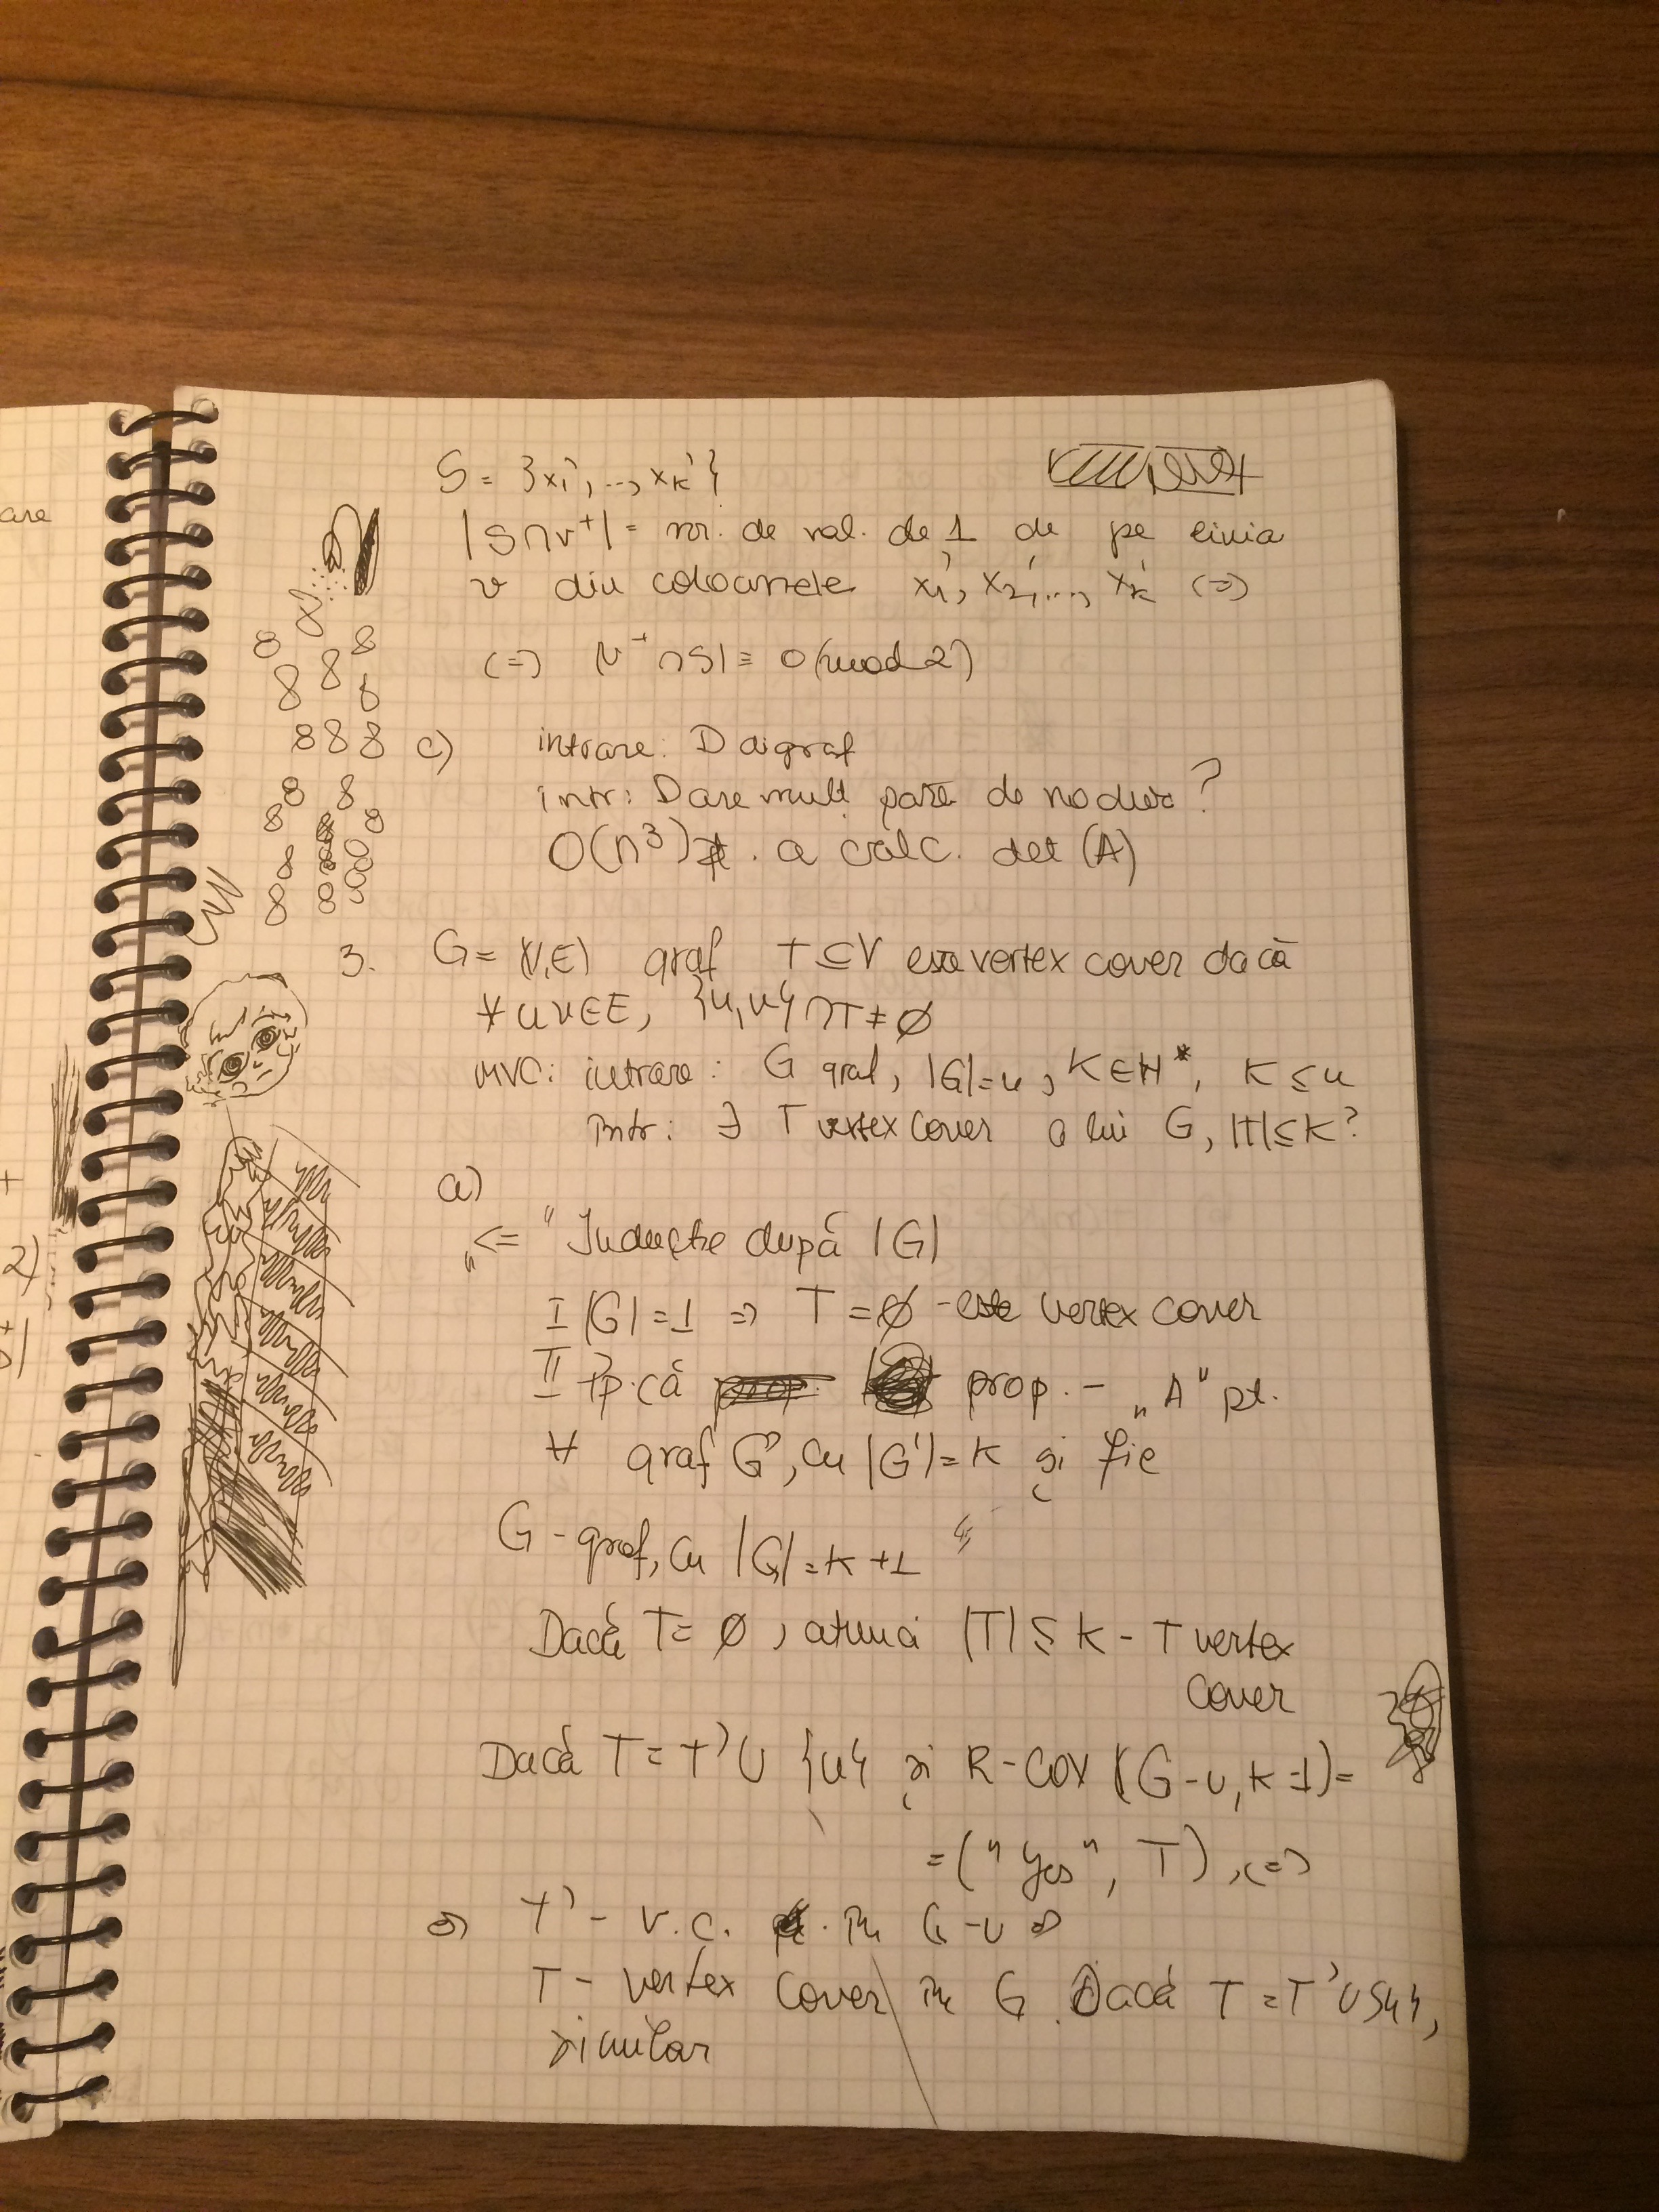 S = {x₁', ..., xₖ'}
|S∩v⁺| = nr. de val. de 1 de pe linia
v din coloanele x₁', x₂', ..., xₖ' (=)
(=) |v⁺∩S| ≡ 0 (mod 2)
c) intrare: D digraf
intr: D are mulț pară de noduri?
O(n³) pt. a calc. det (A)
3. G = (V,E) graf T ⊆ V este vertex cover dacă
∀ uv∈E, {u,v} ∩ T ≠ ∅
MVC: intrare: G graf, |G|=n, K∈ℕ*, K ≤ n
Intr: ∃ T vertex cover a lui G, |T| ≤ K?
a)
„<=" Inducție după |G|
I |G| = 1 => T = ∅ - este vertex cover
II Pp. că prop. - „A" pt.
∀ graf G', cu |G'| = K și fie
G - graf, cu |G| = K+1
Dacă T = ∅, atunci |T| ≤ K - T vertex
cover
Dacă T = T' ∪ {u} și R-Cov (G-u, K-1) =
= ("Yes", T), (=)
=) T' - v.c. în G-u =)
T - vertex cover în G. Dacă T = T' ∪ {u},
similar
are
+
2)